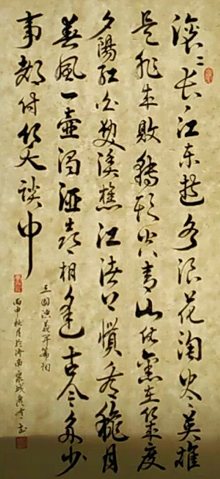 滚滚长江东逝水浪花淘尽英雄
是非成败转头空青山依旧在几度
夕阳红白发渔樵江渚上惯看秋月
春风一壶浊酒喜相逢古今多少
事都付笑谈中
三国演义开篇词
丙申秋月于济南泉城书